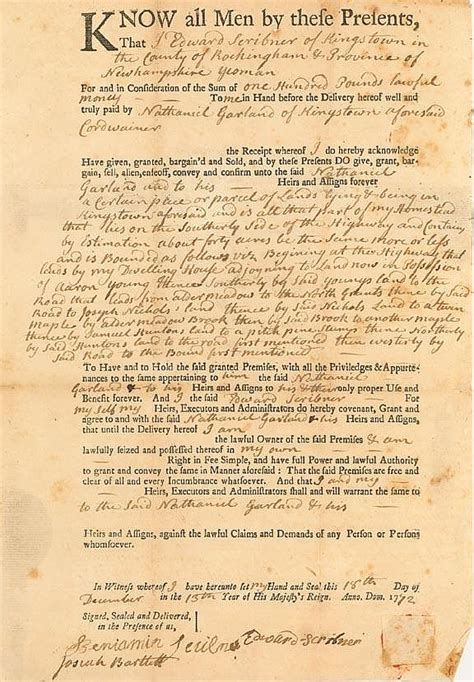 KNOW all Men by theſe Preſents,
That I Edward Scribner of Kingstown in
the County of Rockingham & Province of
Newhampshire Yeoman
For and in Conſideration of the Sum of one Hundred Pounds lawful
money — To me in Hand before the Delivery hereof well and
truly paid by Nathaniel Garland of Kingstown aforesaid
Cordwainer
the Receipt whereof I do hereby acknowledge
Have given, granted, bargain'd and Sold, and by theſe Preſents DO give, grant, bar-
gain, ſell, alien, enfeoff, convey and confirm unto the ſaid Nathaniel
Garland and to his — Heirs and Aſſigns forever
a Certain piece or parcel of Lands lying & being in
Kingstown aforesaid and is all that part of my Homestead
that lies on the Southerly Side of the Highway and Contains
by Estimation about forty acres be the Same more or less
and is Bounded as follows viz Begining at the Highway that
leads by my Dwelling House adjoyning to Land now in Possession
of Aaron young thence Southerly by Said youngs land to the
Road that leads from alder meadow to the North thence by Said
Road to Joseph Nichols land thence by Said Nichols land to a
maple by alder meadow Brook then by Said Brook to another maple
thence by Samuel Huntons land to a pitch pine Stump thence Northerly
by Said Huntons land to the road first mentioned then westerly by
Said Road to the Bound first mentioned —
To Have and to Hold the ſaid granted Premiſes, with all the Priviledges & Appurte-
nances to the ſame appertaining to him the ſaid Nathaniel
Garland & to his Heirs and Aſſigns to his & their only proper Uſe and
Benefit forever. And I the ſaid Edward Scribner — For
my self my Heirs, Executors and Adminiſtrators do hereby covenant, Grant and
agree to and with the ſaid Nathaniel Garland & his Heirs and Aſſigns,
that until the Delivery hereof I am
the lawful Owner of the ſaid Premiſes & am
lawfully ſeized and poſſeſſed thereof in my own
Right in Fee Simple, and have full Power and lawful Authority
to grant and convey the ſame in Manner aforeſaid : That the ſaid Premiſes are free and
clear of all and every Incumbrance whatſoever. And that I and my —
Heirs, Executors and Adminiſtrators ſhall and will warrant the ſame to
to the Said Nathaniel Garland & his —
Heirs and Aſſigns, againſt the lawful Claims and Demands of any Perſon or Perſons
whomſoever.
In Witneſs whereof I have hereunto ſet my Hand and Seal this 18th Day of
December in the 13th Year of His Majeſty's Reign. Anno. Dom. 1772
Signed, Sealed and Delivered,
in the Preſence of us,
Benjamin Scribner Edward Scribner
Josiah Bartlett